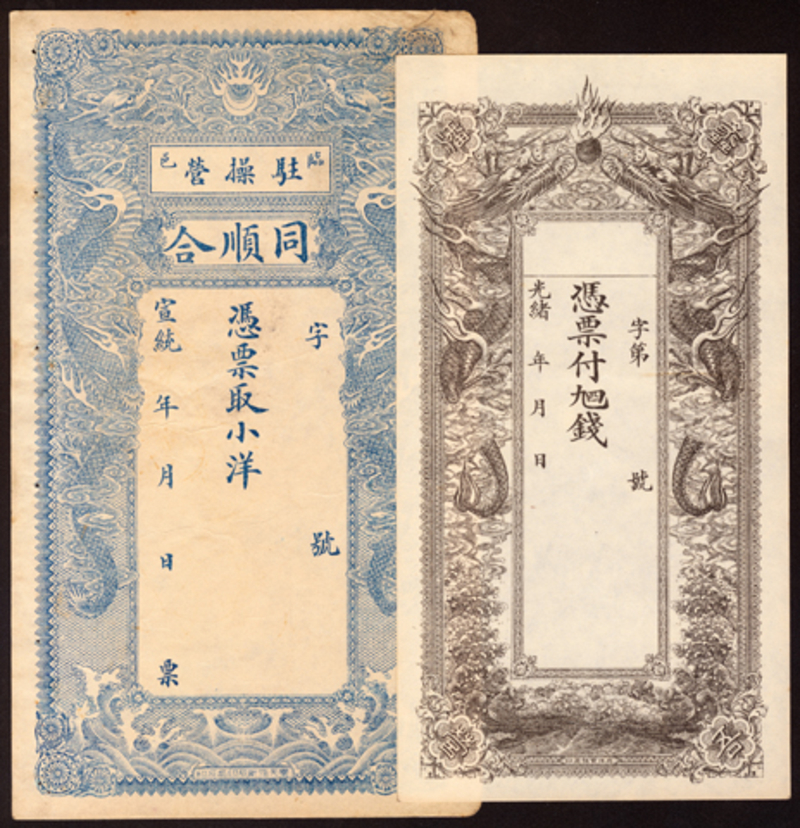 臨駐操營邑
同順合
字 號
憑票取小洋
宣統 年 月 日 票
字第 號
憑票付 錢
光緒 年 月 日